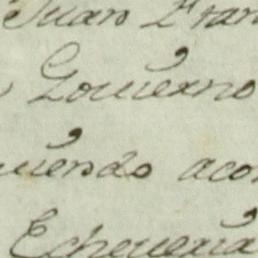 Juan Fran
Gouierno
uiendo aco
Echeueria